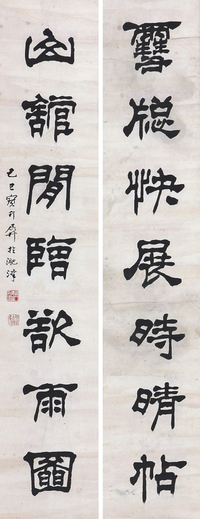 雪牕快展時晴帖
山館閒臨欲雨圖
己巳